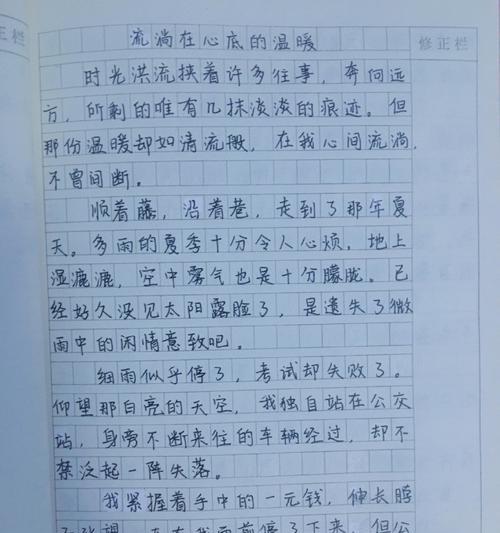 正栏
修正栏
流淌在心底的温暖
时光洪流挟着许多往事，奔向远
方，所剩的唯有几抹淡淡的痕迹。但
那份温暖却如清流般，在我心间流淌，
不曾间断。
顺着藤，沿着巷，走到了那年夏
天。多雨的夏季十分令人心烦，地上
湿漉漉，空中雾气也是十分朦胧。已
经好久没见太阳露脸了，是遗失了微
雨中的闲情意致吧。
细雨似乎停了，考试却失败了。
仰望那白亮的天空，我独自站在公交
站，身旁不断来往的车辆经过，却不
禁泛起一阵失落。
我紧握着手中的一元钱，伸长脖
停了下来，但公